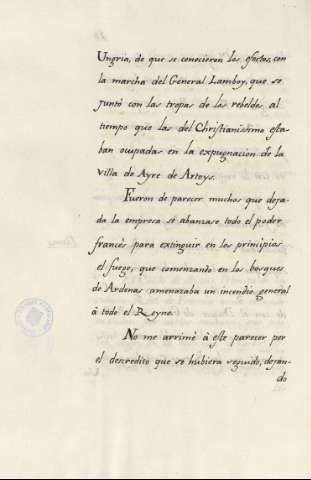 Ungria, de que se conocieron los efectos, con
la marcha del General Lamboy, que se
juntó con las tropas de los rebeldes, al
tiempo que las del Christianissimo esta-
ban ocupadas en la expugnacion de la
Villa de Ayre de Artoys.
Fueron de parecer muchos que deja-
da la empresa se abanzase todo el poder
francés para extinguir en los principios
el fuego, que comenzando en los bosques
de Ardenas amenazaba un incendio general
á todo el Reyno.
No me arrimé á este parecer por
el descredito que se hubiera seguido, dejan-
do